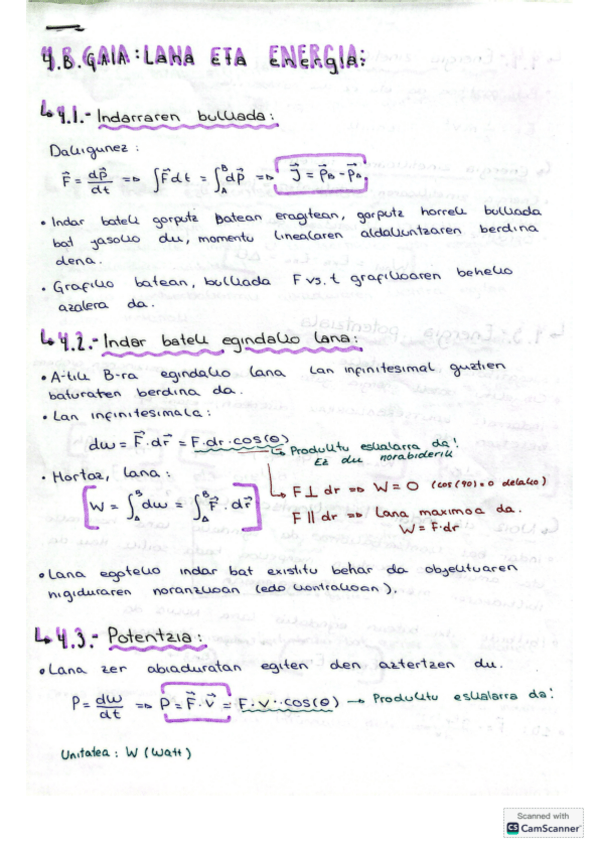 4.B.GAIA: LANA ETA ENERGIA:
↳ 4.1.- Indarraren bulkada:
Dakigunez:
F⃗ = dp⃗/dt => ∫F⃗dt = ∫_A^B dp⃗ => J⃗ = p⃗_B - p⃗_A
• Indar batek gorputz batean eragitean, gorputz horrek bulkada
bat jasoko du, momentu linealaren aldakuntzaren berdina
dena.
• Grafiko batean, bulkada F vs. t grafikoaren beheko
azalera da.
↳ 4.2.- Indar batek egindako lana:
• A-tik B-ra egindako lana lan infinitesimal guztien
baturaren berdina da.
• Lan infinitesimala:
dw = F⃗·dr⃗ = F·dr·cos(θ)
↳ Produktu eskalarra da!
Ez du norabiderik
• Hortaz, lana:
W = ∫_A^B dw = ∫_A^B F⃗·dr⃗
↳ F ⊥ dr => W = 0 (cos(90)=0 delako)
F ∥ dr => Lana maximoa da.
W = F·dr
• Lana egoteko indar bat existitu behar da objektuaren
higiduraren noranzkoan (edo kontrakoan).
↳ 4.3.- Potentzia:
• Lana zer abiaduratan egiten den aztertzen du.
P = dw/dt => P = F⃗·v⃗ = F·v·cos(θ) → Produktu eskalarra da!
Unitatea: W (Watt)
Scanned with
CS CamScanner